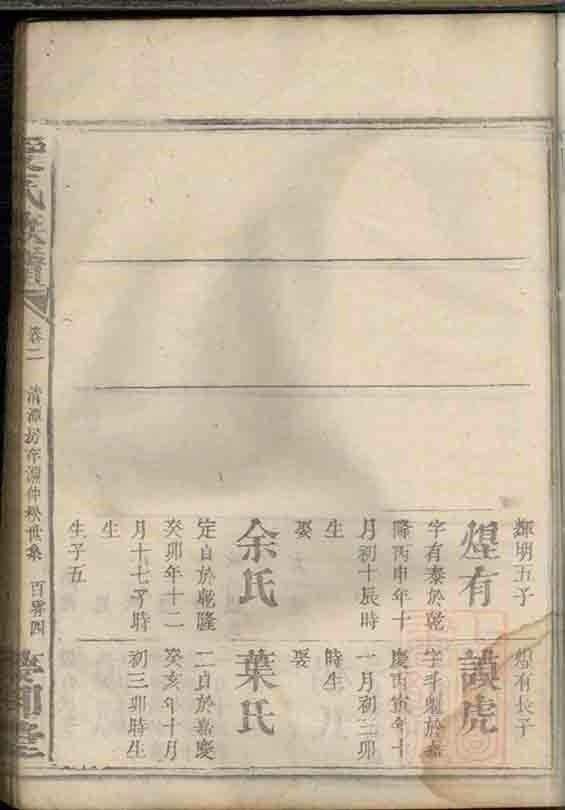 輝明五子
煋有
字有泰於乾
隆丙申年十
月初十辰時
生
娶
余氏
定自於乾隆
癸卯年十二
月十七子時
生
生子五
煋有長子
謨虎
字斗 於嘉
慶丙寅年十
一月初三卯
時生
娶
葉氏
二自於嘉慶
癸亥年十月
初三卯時生
氏族譜
卷二
清潭房存淵仲秋世系
百零四